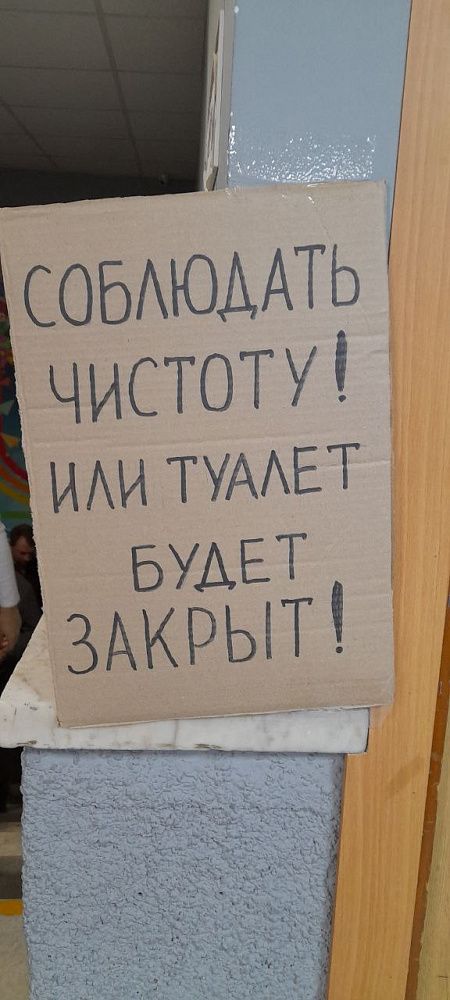 СОБЛЮДАТЬ
ЧИСТОТУ!
ИЛИ ТУАЛЕТ
БУДЕТ
ЗАКРЫТ!